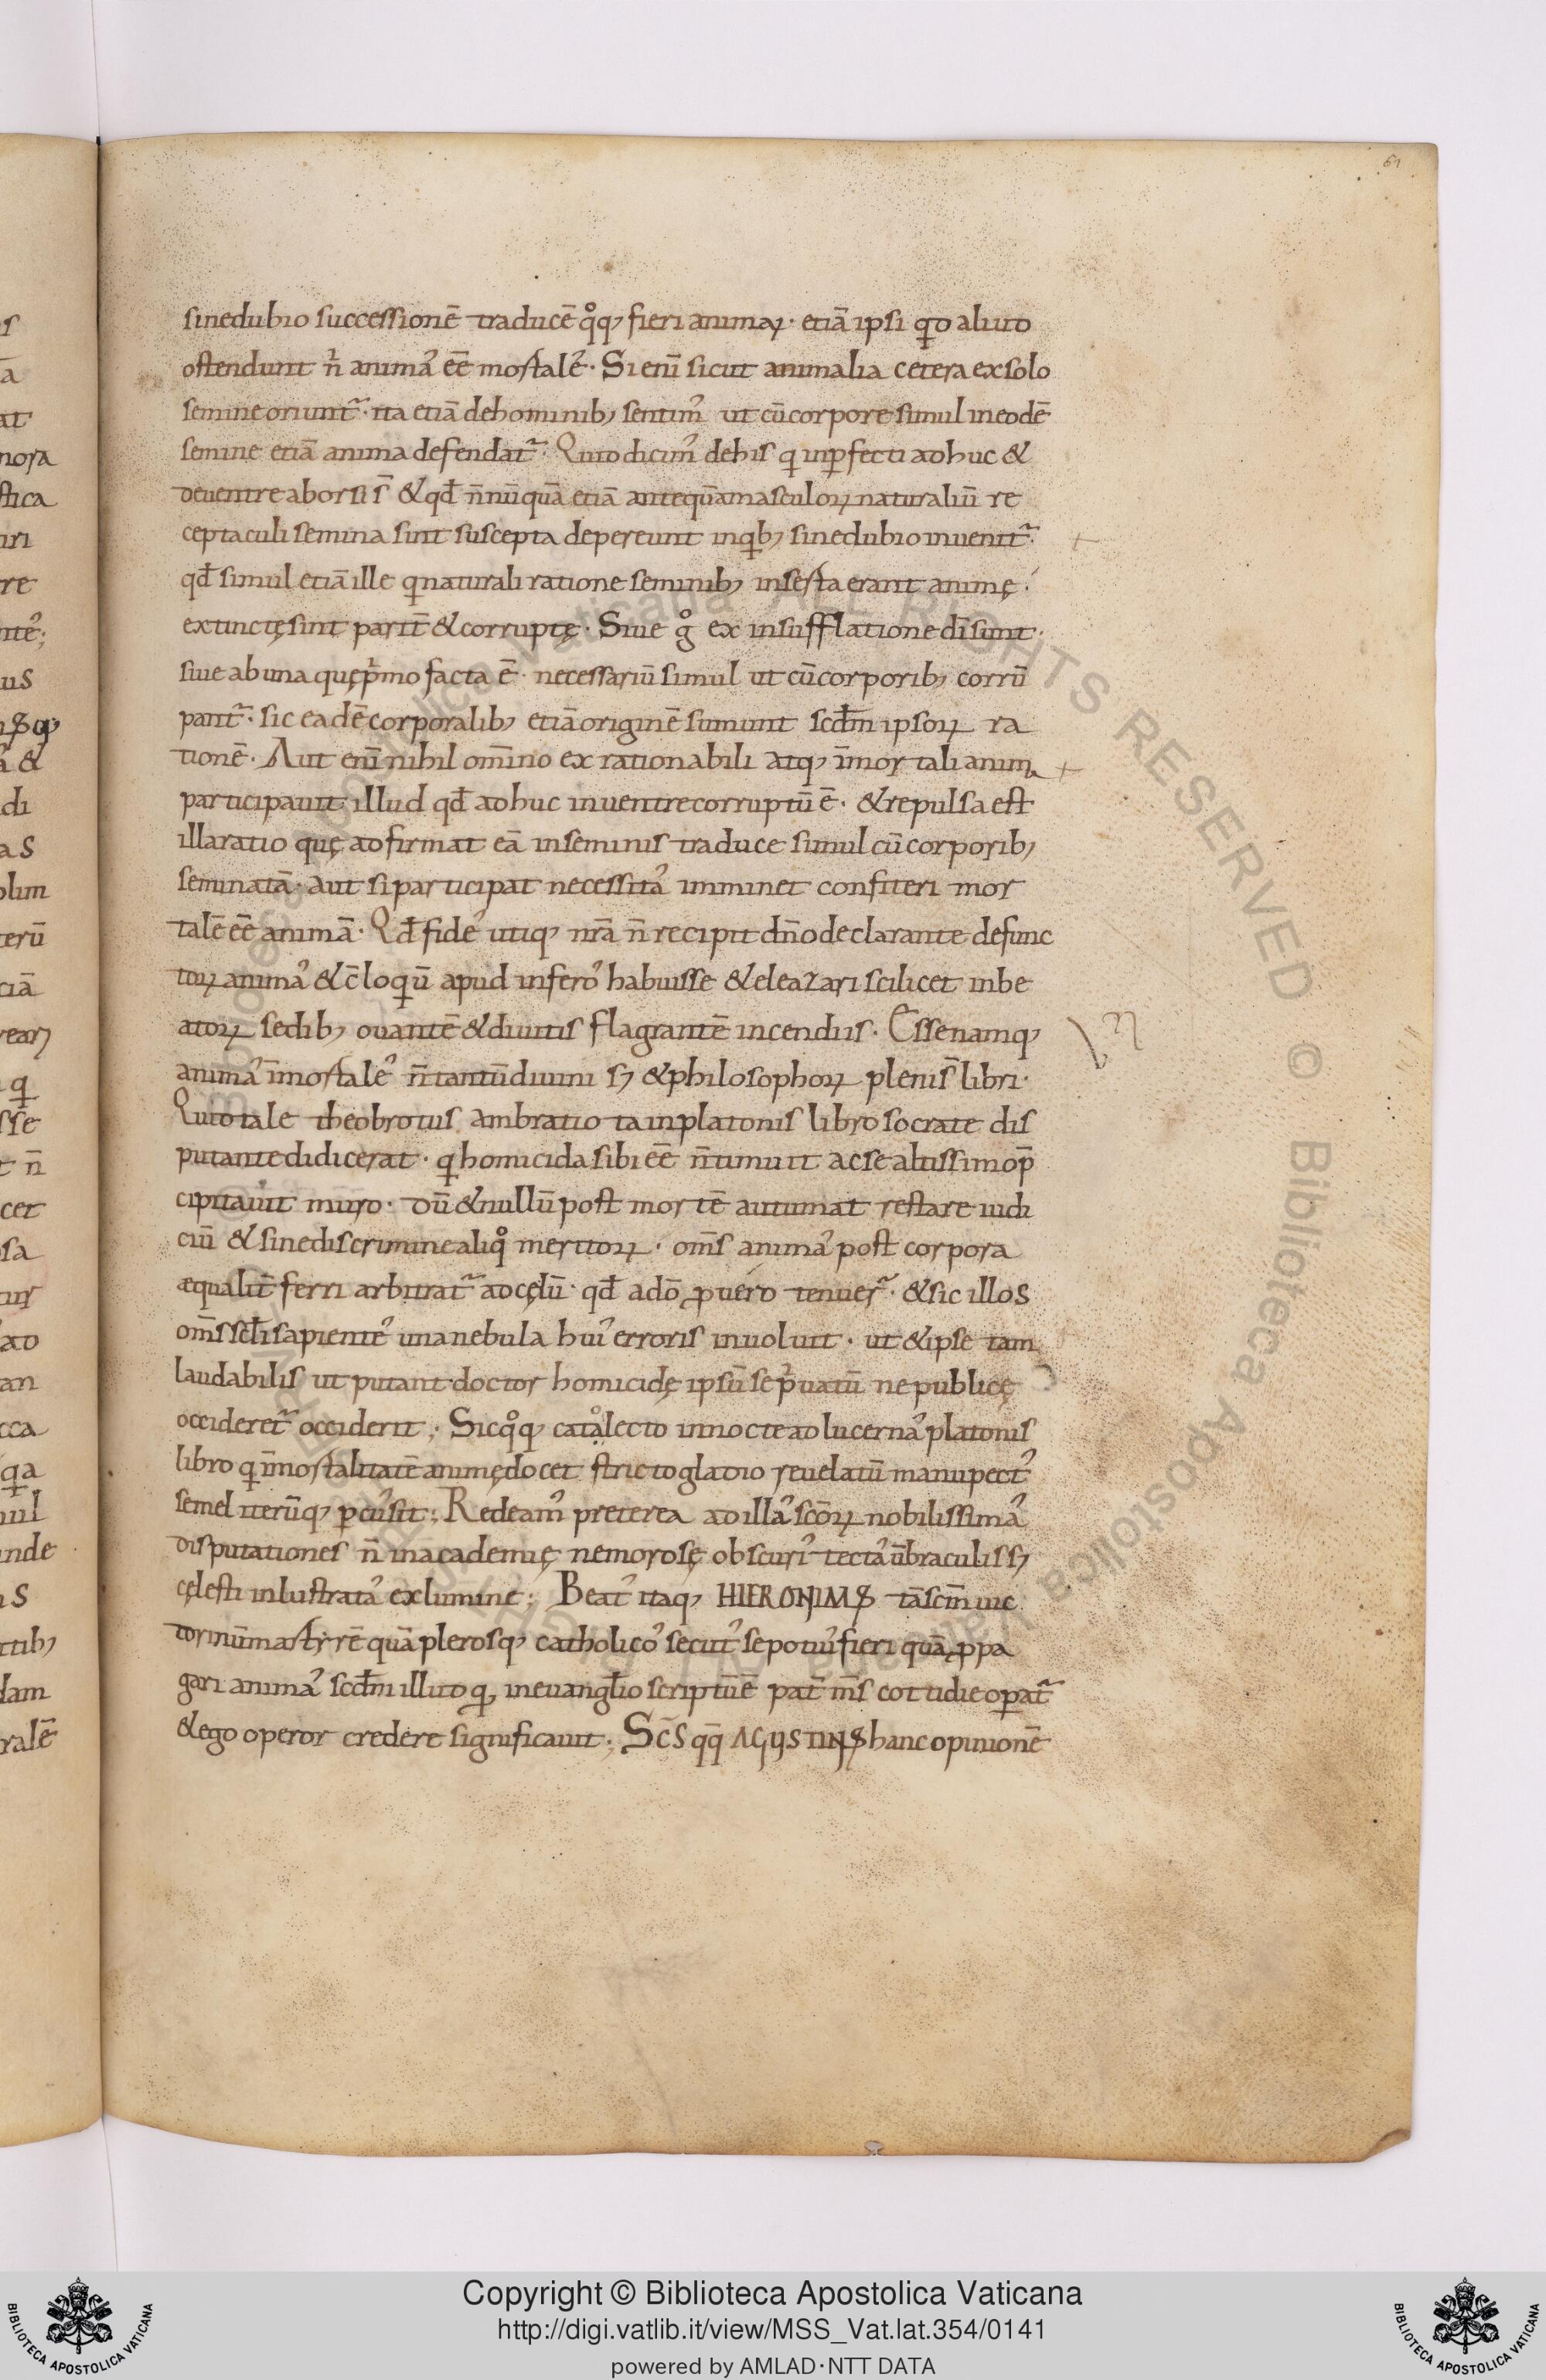 61
sinedubio successionē traducē qͦq; fieri animaꝝ· etiā ipsi qͥd aliud
ostendunt nͥ animaʼ eē mortaleʼ· Si enī sicut animalia cetera exsolo
semine oriunt᷑· ita etiā dehominib; sentimʼ ut cū corpore simul ineodē
semine etiā anima defendat᷑· Quid dicimʼ dehis qͥ inꝑfecti adhuc &
deuentre aborsi s̄ & qđ n̄nūquā etiā antequāmasculoꝝ naturaliū re
ceptaculi semina sint suscepta depereunt inqͥb; sinedubio inuenit᷑·
qđ simul etiā ille qͥ naturali ratione seminib; inserta erant animę·
extinctę sint parit̄ & corruptę· Siue gͦ ex insufflatione dī sunt·
siue ab una quę pͥmo facta ē· necessariū simul ut cū corporib; corrū
pant᷑· sic eadē corporalib; etiā originē sumunt scđm ipsoꝝ ra
tionē· Aut enī nihil om̄ino ex rationabili atq; īmortali anima
participauit illud qđ adhuc inuentre corruptū ē· & repulsa est
illa ratio quę adfirmat eā inseminis traduce simul cū corporib;
seminatā· aut si participat necessitaʼ imminet confiteri mor
talē eē animā· Qđ fideʼ utiq; nr̄a n̄ recipit dn̄o declarante defunc
toꝝ animaʼ & c̄loqͥū apud inferoʼ habuisse & eleazari scilicet inbe
atoꝝ sedib; ouantē & diuitis flagrantē incendiis· Esse namq;
animaʼ īmortaleʼ n̄ tantū diuini sꝫ & philosophoꝝ pleni s̄ libri·
Quid tale theobrotus ambratiota inplatonis libro socrate dis
putante didicerat· qͥ homicida sibi eē n̄ timuit ac se altissimo p̄
cipitauit muro· dū & nullū post mortē autumat restare iudi
ciū & sinediscrimine aliqͦ meritoꝝ· om̄s animaʼ post corpora
æqualit̄ ferri arbitrat᷑ ad cęlū· qđ adō ꝓ uero tenuer᷑· & sic illos
om̄s scłi sapienteʼ una nebula huiʼ erroris inuoluit· ut & ipse tam
laudabilis ut putant doctor homicidę ipsū se pͥuatū ne publicę
occideret᷑ occiderit; Sicqͦq; catͦ lecto innocte ad lucernaʼ platonis
libro qͥ īmortalitatē animę docet stricto gladio reuelatū manu pectʼ
semel iterūq; ꝑcusit; Redeamʼ preterea ad illaʼ scōꝝ nobilissimaʼ
disputationes n̄ inacademię nemorosę obscuriʼ tectaʼ ūbraculis sꝫ
cęlesti inlustrataʼ ex lumine; Beatʼ itaq; HIERONIMUS tā scm̄ uic
torinū martyrē quā plerosq; catholicoʼ secutʼ sepotiuʼ fieri quā ꝓpa
gari animaʼ scđm illud qͥ, ineuangłio scriptū ē pat̄ m̄s cottidie operat᷑
& ego operor credere significauit; Sc̄s qq̄ AGUSTINUS hanc opinionē
Copyright © Biblioteca Apostolica Vaticana
http://digi.vatlib.it/view/MSS_Vat.lat.354/0141
powered by AMLAD·NTT DATA